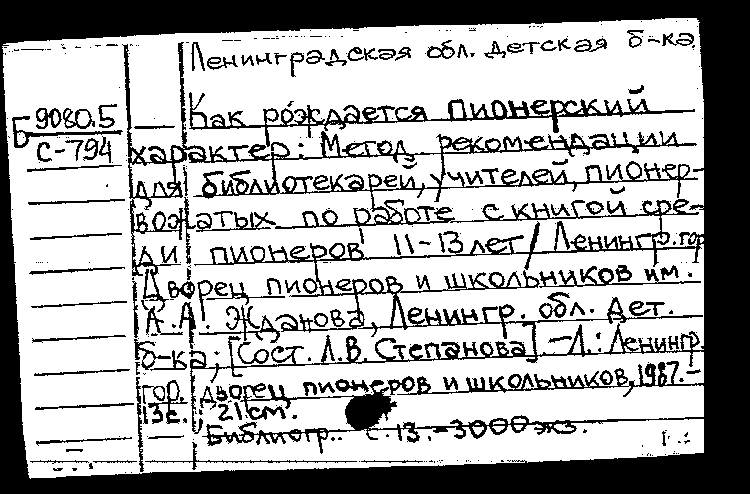 Ленинградская обл. детская б-ка
Как рождается пионерский
Б 9080.5
С-794
характер: Метод. рекомендации
для библиотекарей, учителей, пионер-
вожатых по работе с книгой сре-
ди пионеров 11-13 лет / Ленингр. гор.
Дворец пионеров и школьников им.
А.А. Жданова, Ленингр. обл. дет.
б-ка; [Сост. Л.В. Степанова]. -Л.: Ленингр.
гор. дворец пионеров и школьников, 1987. -
13с. 21см.
Библиогр.. с. 13. - 3000 экз.